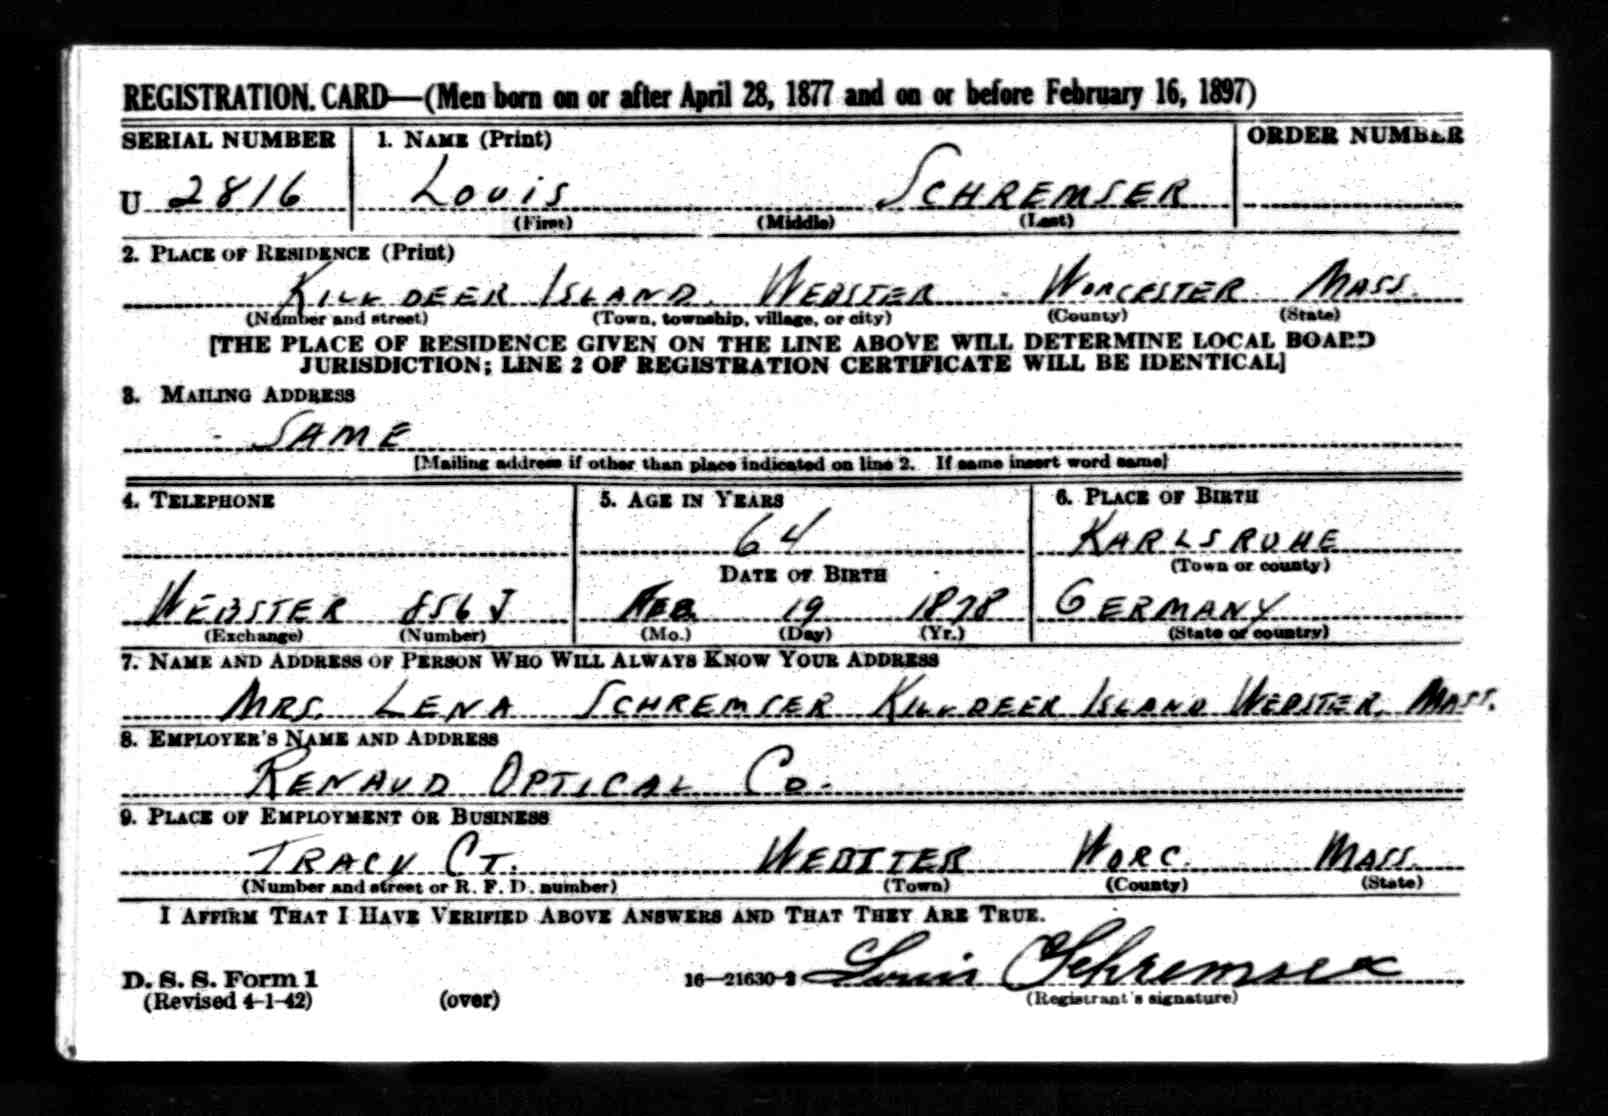 REGISTRATION CARD—(Men born on or after April 28, 1877 and on or before February 16, 1897)
SERIAL NUMBER 1. NAME (Print) ORDER NUMBER
U 2816 LOUIS SCHREMSER
(First) (Middle) (Last)
2. PLACE OF RESIDENCE (Print)
KILLDEER ISLAND WEBSTER WORCESTER MASS.
(Number and street) (Town, township, village, or city) (County) (State)
[THE PLACE OF RESIDENCE GIVEN ON THE LINE ABOVE WILL DETERMINE LOCAL BOARD
JURISDICTION; LINE 2 OF REGISTRATION CERTIFICATE WILL BE IDENTICAL]
3. MAILING ADDRESS
SAME
[Mailing address if other than place indicated on line 2. If same insert word same]
4. TELEPHONE 5. AGE IN YEARS 6. PLACE OF BIRTH
64 KARLSRUHE
DATE OF BIRTH (Town or county)
WEBSTER 856 J FEB. 19 1878 GERMANY
(Exchange) (Number) (Mo.) (Day) (Yr.) (State or country)
7. NAME AND ADDRESS OF PERSON WHO WILL ALWAYS KNOW YOUR ADDRESS
MRS. LENA SCHREMSER KILLDEER ISLAND WEBSTER, MASS.
8. EMPLOYER'S NAME AND ADDRESS
RENAUD OPTICAL CO.
9. PLACE OF EMPLOYMENT OR BUSINESS
TRACY CT. WEBSTER WORC. MASS.
(Number and street or R. F. D. number) (Town) (County) (State)
I AFFIRM THAT I HAVE VERIFIED ABOVE ANSWERS AND THAT THEY ARE TRUE.
D. S. S. Form 1 16—21630-2 Louis Schremser
(Revised 4-1-42) (over) (Registrant's signature)